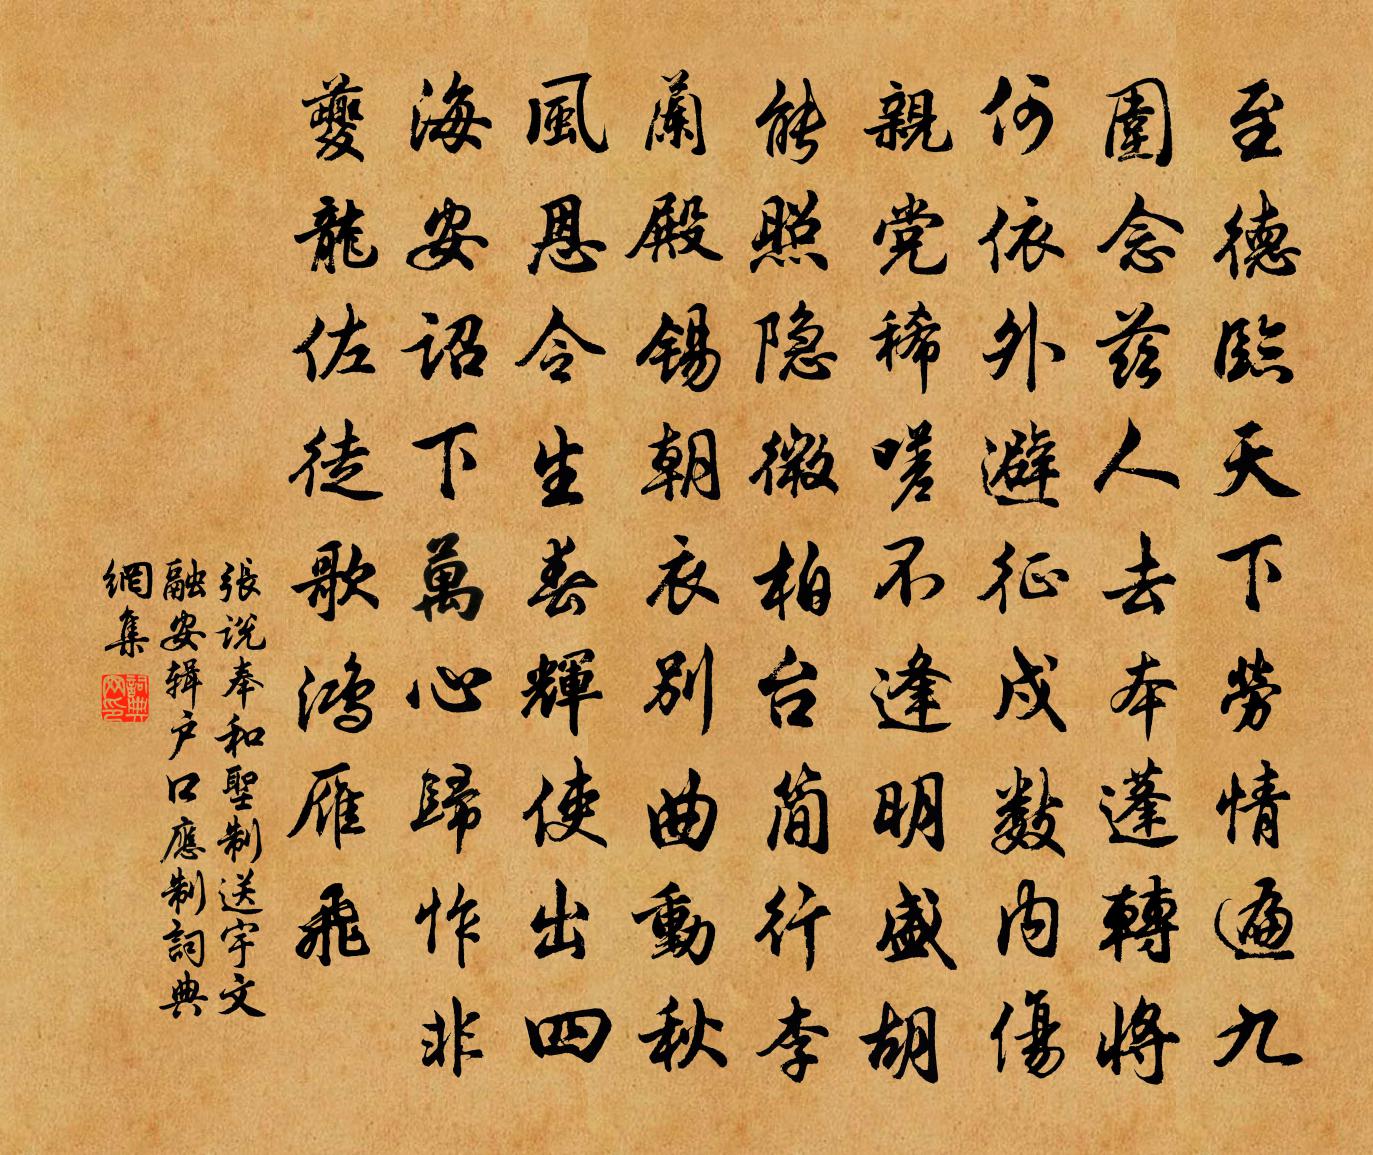 至德臨天下勞情遍九
圍念茲人去本蓬轉將
何依外避征戍數内傷
親党稀嗟不逢明盛胡
能照隐微柏台簡行李
蘭殿錫朝衣别曲動秋
風恩令生春輝使出四
海安詔下萬心歸怍非
夔龍佐徒歌鴻雁飛
張説奉和聖制送宇文
融安輯户口應制詞典
網集
詞典网印